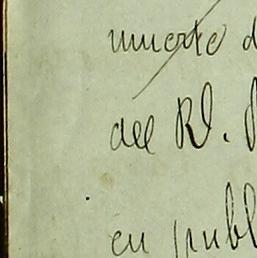 muerte d
del Rl. P
en publ